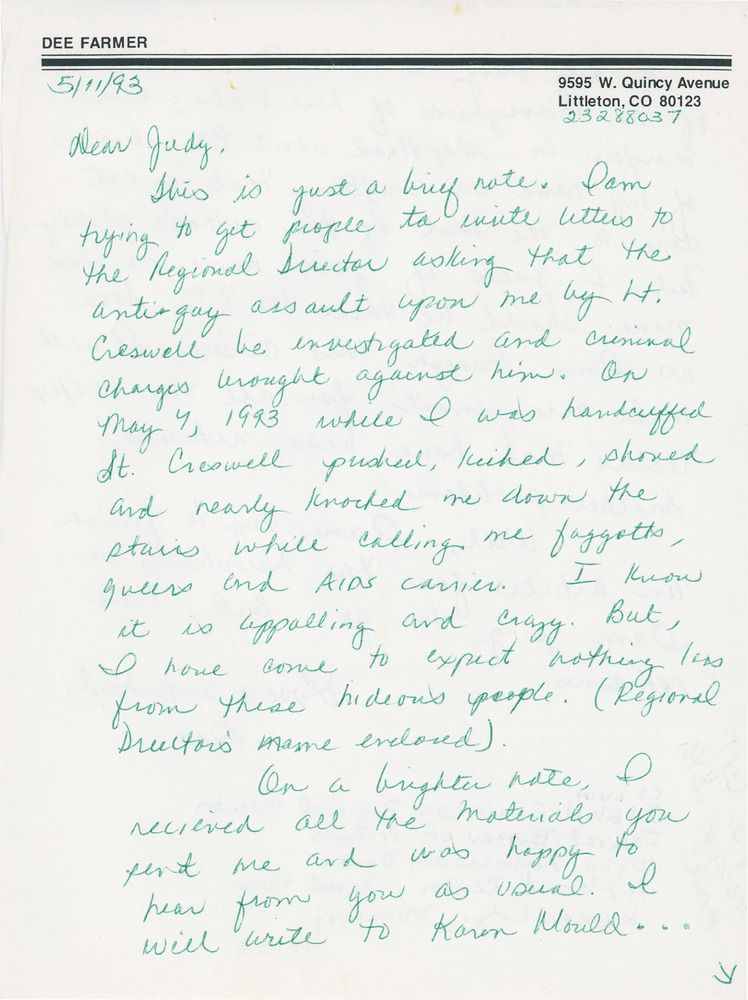 DEE FARMER
5/11/93
9595 W. Quincy Avenue
Littleton, CO 80123
23288037
Dear Judy,
This is just a brief note. I am
trying to get people to write letters to
the Regional Director asking that the
anti-gay assault upon me by Lt.
Creswell be investigated and criminal
charges brought against him. On
May 7, 1993 while I was handcuffed
Lt. Creswell pushed, kicked, shoved
and nearly knocked me down the
stairs while calling me faggotts,
queers and AIDS carrier. I know
it is appalling and crazy. But,
I have come to expect nothing less
from these hideous people. (Regional
Director's name enclosed).
On a brighter note, I
recieved all the materials you
sent me and was happy to
hear from you as usual. I
will write to Karen Mould...